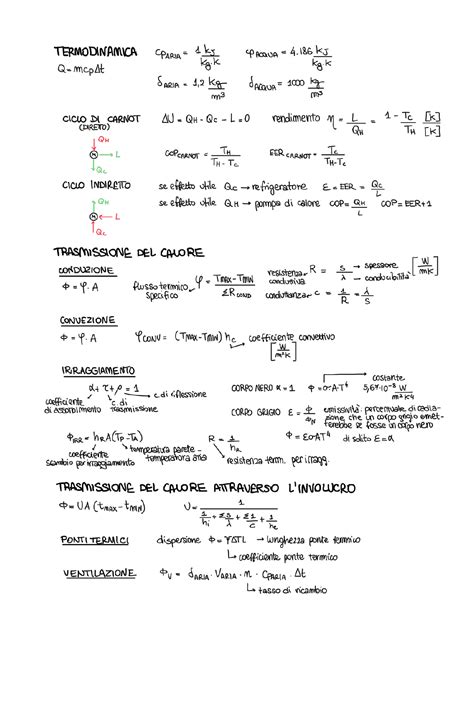 TERMODINAMICA cpARIA = 1 kJ/kg·K cpACQUA = 4.186 kJ/kg·K
Q = mcpΔt
δARIA = 1,2 kg/m³ δACQUA = 1000 kg/m³
CICLO DI CARNOT ΔU = QH - QC - L = 0 rendimento η = L/QH = 1 - TC/TH [K]/[K]
(DIRETO)
QH
M → L
QC
COP CARNOT = TH/(TH-TC) EER CARNOT = TC/(TH-TC)
CICLO INDIRETTO se effetto utile QC → refrigeratore E = EER = QC/L
QH
M ← L
QC
se effetto utile QH → pompa di calore COP = QH/L COP = EER+1
TRASMISSIONE DEL CALORE
CONDUZIONE
Φ = φ·A flusso termico specifico φ = (Tmax-TMIN)/ΣRCOND
resistenza conduttiva R = s/λ → spessore → conducibilità [W/mK]
conduttanza c = 1/R = λ/s
CONVEZIONE
Φ = φ·A φCONV = (Tmax-TMIN) hc → coefficiente convettivo [W/m²K]
IRRAGGIAMENTO
α + τ + ρ = 1 c. di riflessione
coefficiente di assorbimento c. di trasmissione
CORPO NERO α = 1 Φ = σ·A·T⁴ costante 5,67·10⁻⁸ W/m²K⁴
CORPO GRIGIO ε = Φ/ΦN emissività: percentuale di radiazione che un corpo grigio emetterebbe se fosse un corpo nero
Φ = εσAT⁴ di solito ε = α
ΦRR = hRA(TP-TA) R = 1/hR
coefficiente scambio per irraggiamento
temperatura parete - temperatura aria
resistenza term. per irragg.
TRASMISSIONE DEL CALORE ATTRAVERSO L'INVOLUCRO
Φ = UA (tmax-tMIN) U = 1/(1/hi + Σs/λ + Σ1/c + 1/he)
PONTI TERMICI dispersione Φ = ΨΔTL → lunghezza ponte termico
↳ coefficiente ponte termico
VENTILAZIONE ΦV = δARIA · VARIA · n · cpARIA · Δt
↳ tasso di ricambio